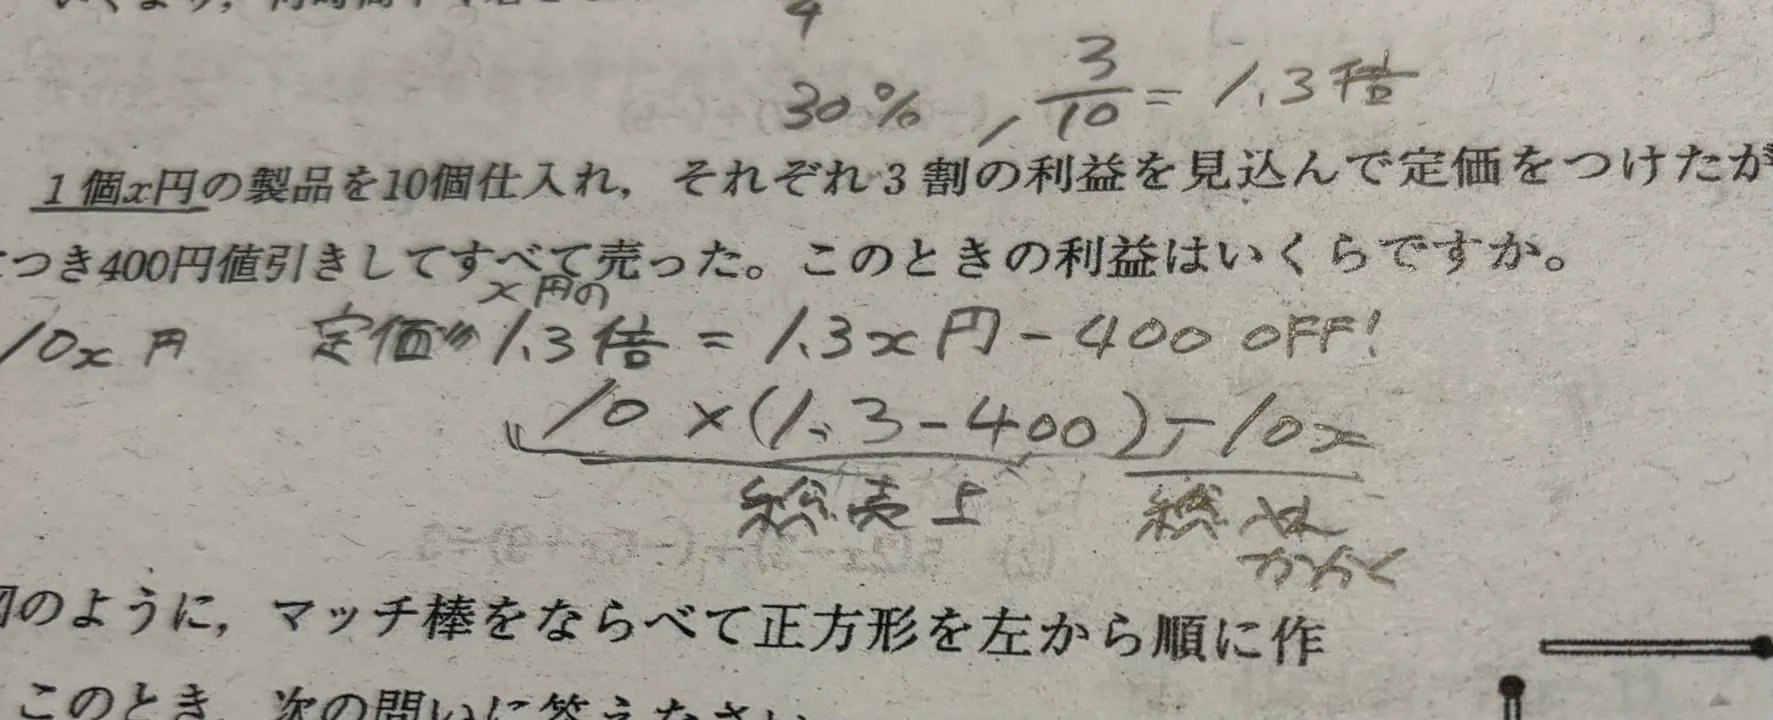 4
30% , 3/10 = 1.3倍
1個x円の製品を10個仕入れ，それぞれ3割の利益を見込んで定価をつけたが
つき400円値引きしてすべて売った。このときの利益はいくらですか。
x円の
10x円 定価〃 1.3倍 = 1.3x円 - 400 OFF!
10 × (1.3 - 400) - 10x
総売上 総
かかく
のように，マッチ棒をならべて正方形を左から順に作
このとき，次の問いに答えなさい